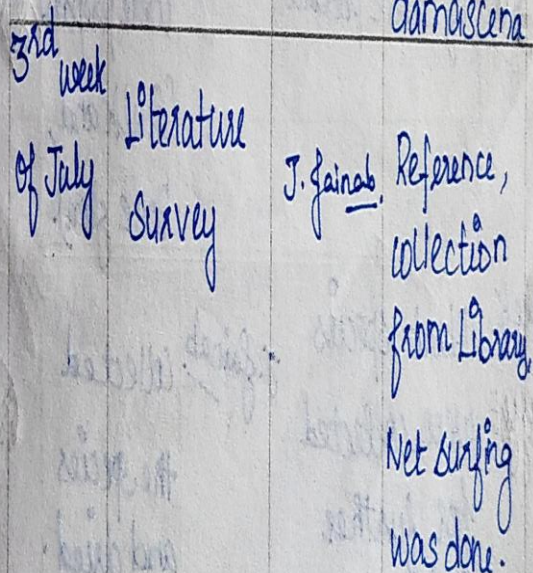 damascena
3rd week
of July
Literature
Survey
J. Jainab.
Reference,
collection
from Library,
Net surfing
was done.